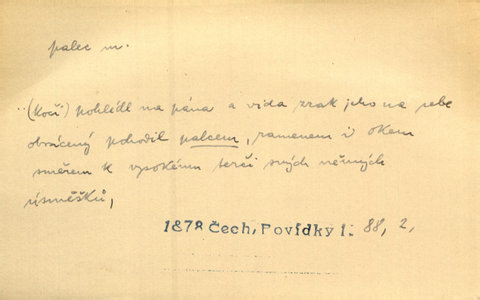 palec m.
(Kočí) pohlédl na pána a vida zrak jeho na sebe
obrácený pohodil palcem, ramenem i okem
směrem k vysokému terči svých němých
úsměšků,
1878 Čech, Povídky I. 88, 2,